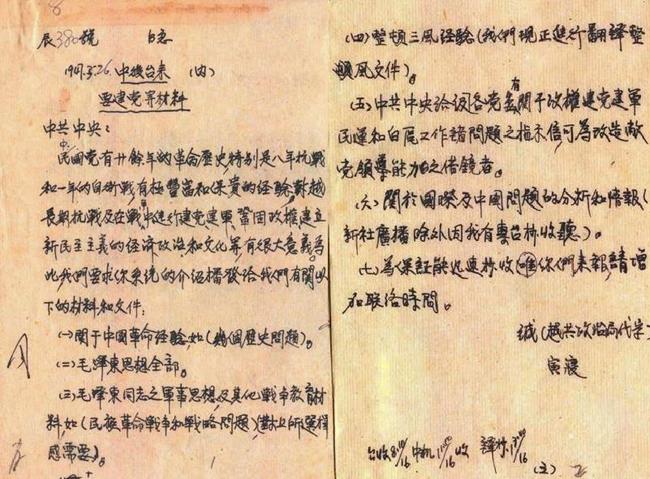 辰380號
1947.3.26.中機台来(内)
要建党等材料
中共中央:
民國党有廿餘年的革命歷史特別是八年抗戰
和一年的自衛戰有極豐富和保貴的经驗,對越
長期抗戰及在戰中進行建党建軍鞏固政權建立
新民主主義的経済政治和文化等有很大意義為
此我們要求你系統的介绍播發給我們有関以
下的材料和文件:
(一)関于中國革命经驗,如(幾個歷史問題)。
(二)毛澤東思想全部。
(三)毛澤東同志之軍事思想及其他戰爭教育材
料,如(民族革命戰爭和戰略問題)(對上師選擇
感需要)。
(四)整頓三風经驗(我們現正進行翻譯整
風文件)。
(五)中共中央給组各党有関于政權建党建軍
民運和白區工作諸問題之指示信可為改造敵
党領導能力之借鏡者。
(六)関於國際及中國問題的分析和情報(
新社廣播除外因我有專台抄收聽)。
(七)為保証能迅速抄收你們来報,請增
加联络時間。
誠(越共政治局代字)
寅寢
台收8/16 中机11/16 收 譯抄13/16